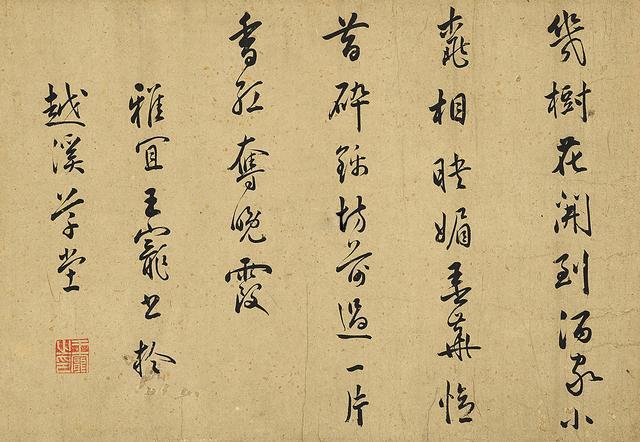 幾樹花開到酒家小
桃相映媚春華憶
昔碎錦坊前過一片
香紅奪晚霞
雅宜王寵書於
越溪草堂